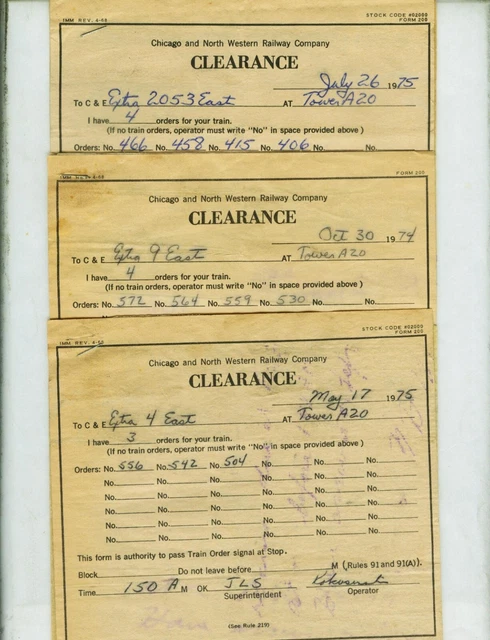 1MM REV. 4-68
STOCK CODE #52000
FORM 200
Chicago and North Western Railway Company
CLEARANCE
July 26 1975
To C & E Extra 2053 East AT Tower A20
I have 4 orders for your train.
(If no train orders, operator must write "No" in space provided above)
Orders: No. 466 No. 458 No. 415 No. 406 No. No.
FORM 200
Chicago and North Western Railway Company
CLEARANCE
Oct 30 1974
To C & E Extra 9 East AT Tower A20
I have 4 orders for your train.
(If no train orders, operator must write "No" in space provided above)
Orders: No. 572 No. 564 No. 559 No. 530 No. No.
1MM REV. 4-68
STOCK CODE #52000
FORM 200
Chicago and North Western Railway Company
CLEARANCE
May 17 1975
To C & E Extra 4 East AT Tower A20
I have 3 orders for your train.
(If no train orders, operator must write "No" in space provided above)
Orders: No. 556 No. 542 No. 504 No. No. No.
No. No. No. No. No. No.
No. No. No. No. No. No.
No. No. No. No. No. No.
No. No. No. No. No. No.
No. No. No. No. No. No.
This form is authority to pass Train Order signal at Stop.
Block Do not leave before M (Rules 91 and 91(A).
Time 150 A M OK JLS
Superintendent Operator
(See Rule 219)